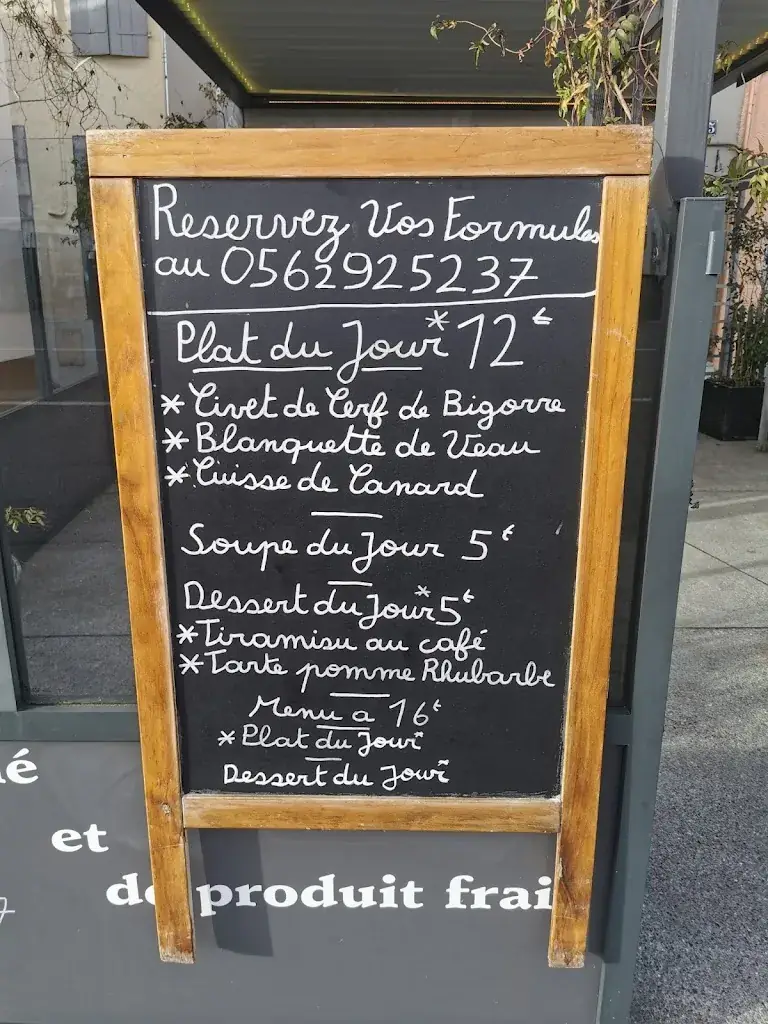 Reservez Vos Formules
au 0562925237
Plat du Jour* 12€
* Civet de Cerf de Bigorre
* Blanquette de Veau
* Cuisse de Canard
Soupe du Jour 5€
Dessert du Jour* 5€
* Tiramisu au café
* Tarte pomme Rhubarbe
Menu a 16€
* Plat du Jour
Dessert du Jour
et
de produit frai